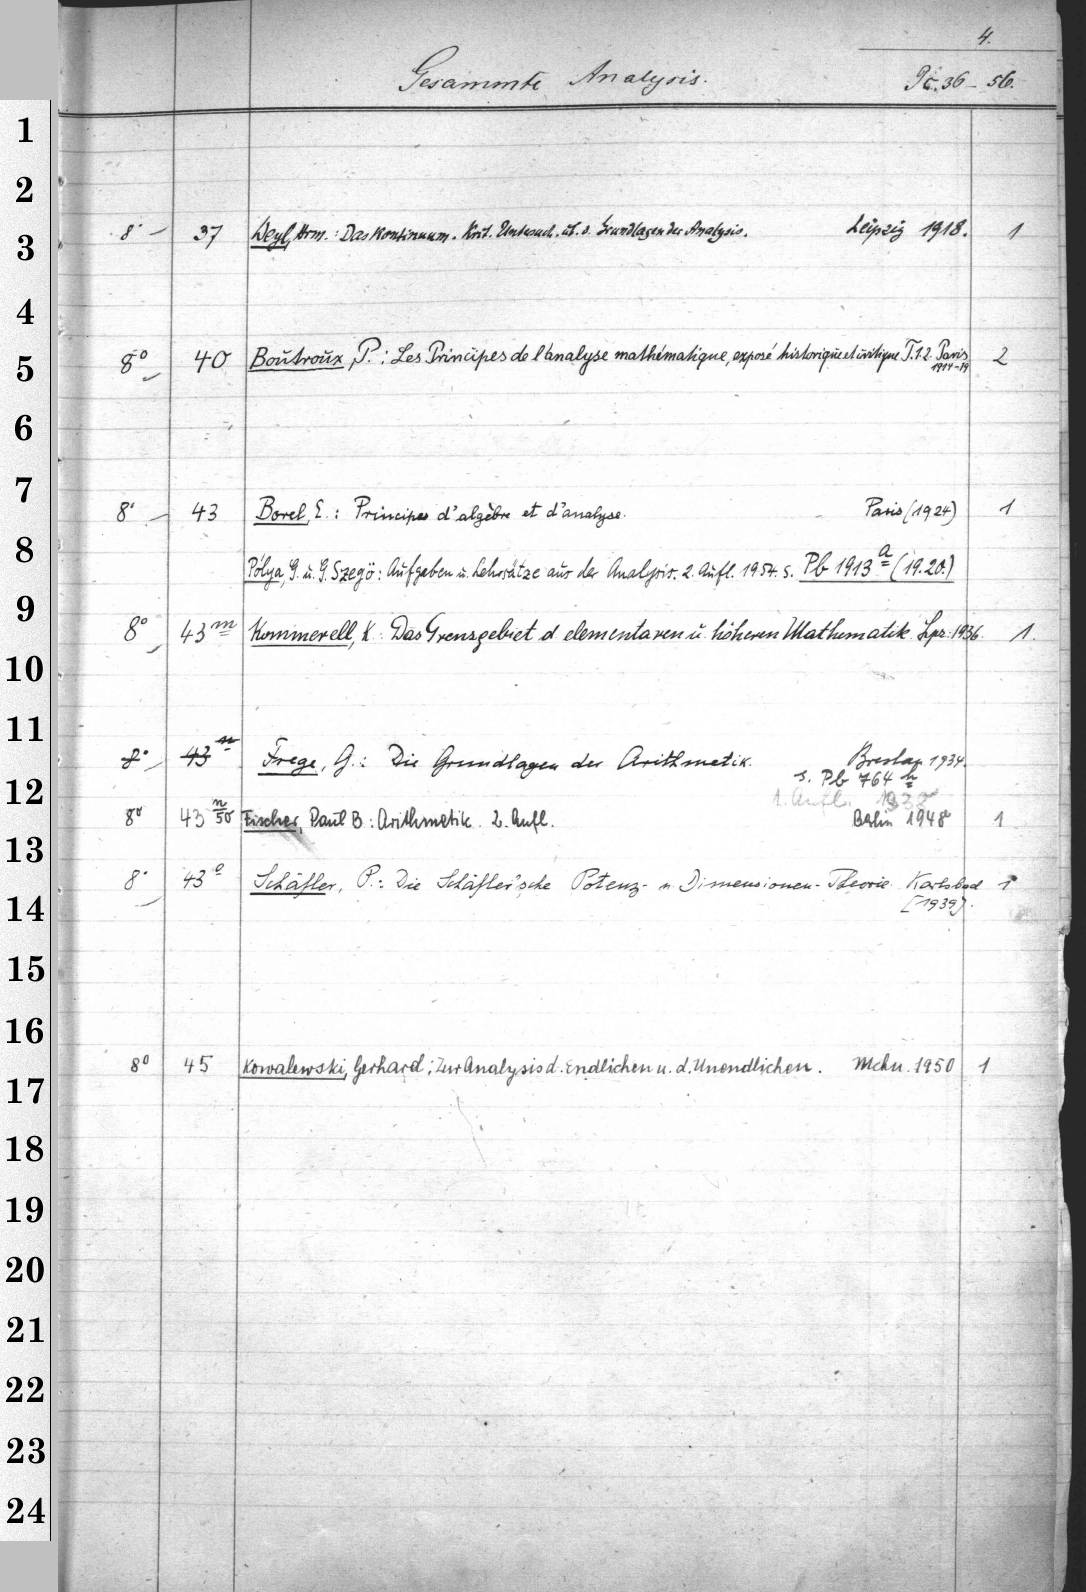 4.
Gesammte Analysis. Pc. 36 - 56.
1
2
8° 37 Weyl, Hrm.: Das Kontinuum. Krit. Untersuch. üb. d. Grundlagen der Analysis. Leipzig 1918. 1
3
4
8° 40 Boutroux, P.: Les Principes de l'analyse mathématique, exposé historique et critique T.1.2. Paris 2
1914-19
5
6
7
8° 43 Borel, E.: Principes d'algèbre et d'analyse. Paris (1924) 1
8
Pólya, G. u. G. Szegö: Aufgaben u. Lehrsätze aus der Analysis. 2. Aufl. 1954. s. Pb 1913 a (19.20.)
9
8° 43 m Kommerell, K.: Das Grenzgebiet d. elementaren u. höheren Mathematik. Lpz. 1936. 1.
10
11
8° 43 n Frege, G.: Die Grundlagen der Arithmetik. Breslau 1934.
s. Pb 764 h
12
1. Aufl. 1938
8° 43 n/50 Fischer, Paul B.: Arithmetik. 2. Aufl. Berlin 1948 1
13
8° 43 o Schäfler, P.: Die Schäfler'sche Potenz- u. Dimensionen-Theorie. Karlsbad 1
[1939].
14
15
16
8° 45 Kowalewski, Gerhard: Zur Analysis d. Endlichen u. d. Unendlichen. Mchn. 1950 1
17
18
19
20
21
22
23
24